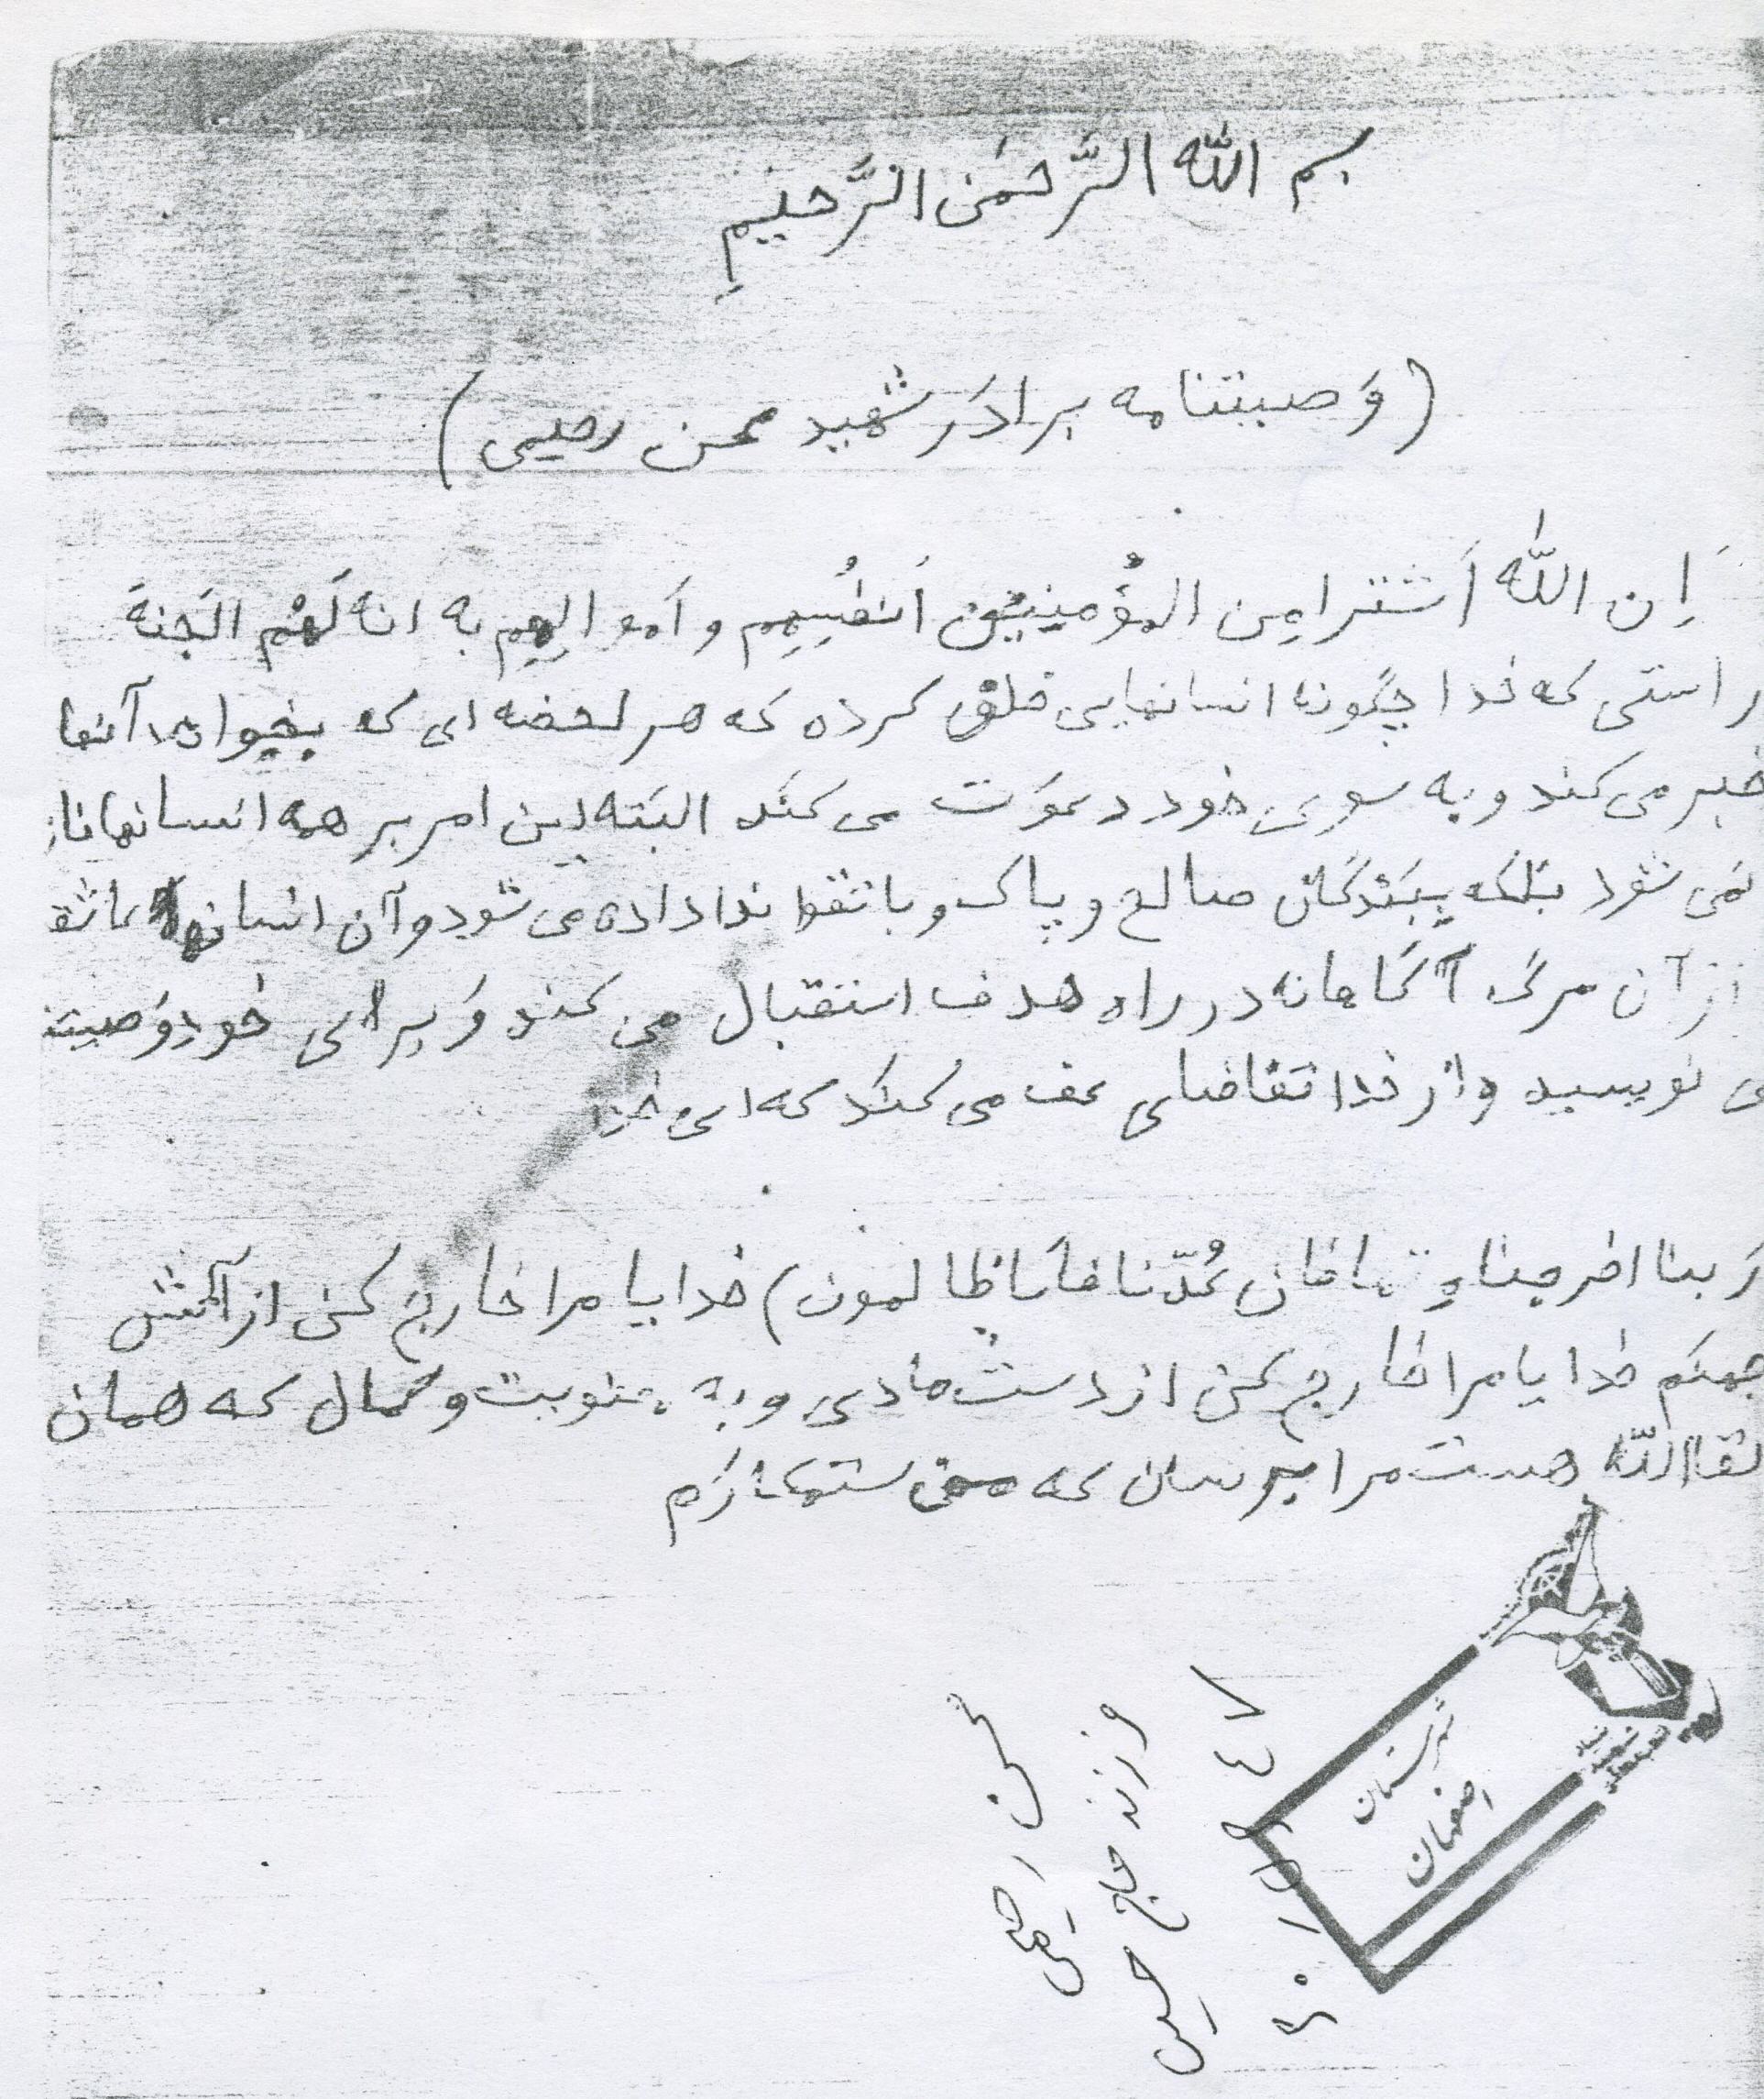 بسم الله الرَّحمٰن الرَّحیمِ
(وَصیتنامه برادَر شهید محسن رحیمی)
اِن اللّٰه اَشترا مِن المؤُمِنینَ اَنفُسِهِم و اَموالِهِم به انه لَهُم الجَنهَ
راستی که خدا چگونه انسانهایی خلق کرده که هر لحضه ای که بخواهد آنها
خبر می کند و به سوی خود دعوَت می کنَد البَته این امر بر همه انسانها
نمَی شوَد بَلکه ببَندگان صالح و پاک و با تقوا ندا داده می شود و آن انسانها
از آن مرگ آگاهانه در راه هدف استقبال می کند وَ برای خود وَصیت
می نویسید و از خدا تقاضای عف می کنَد که ای خدا
رَبنا اخرجنا فان عُدّنا فاَنا ظالمون) خدایا مرا خارج کن از آتش
جهنَم خدایا مرا خارج کن از دست مادی و به معنویت و کمال که همان
لقاالله هست مرا برسان که من ستمکارَم
محسن رحیمی
فرزند حاج حسین
شهرستان
اصفهان
بنیاد
شهید